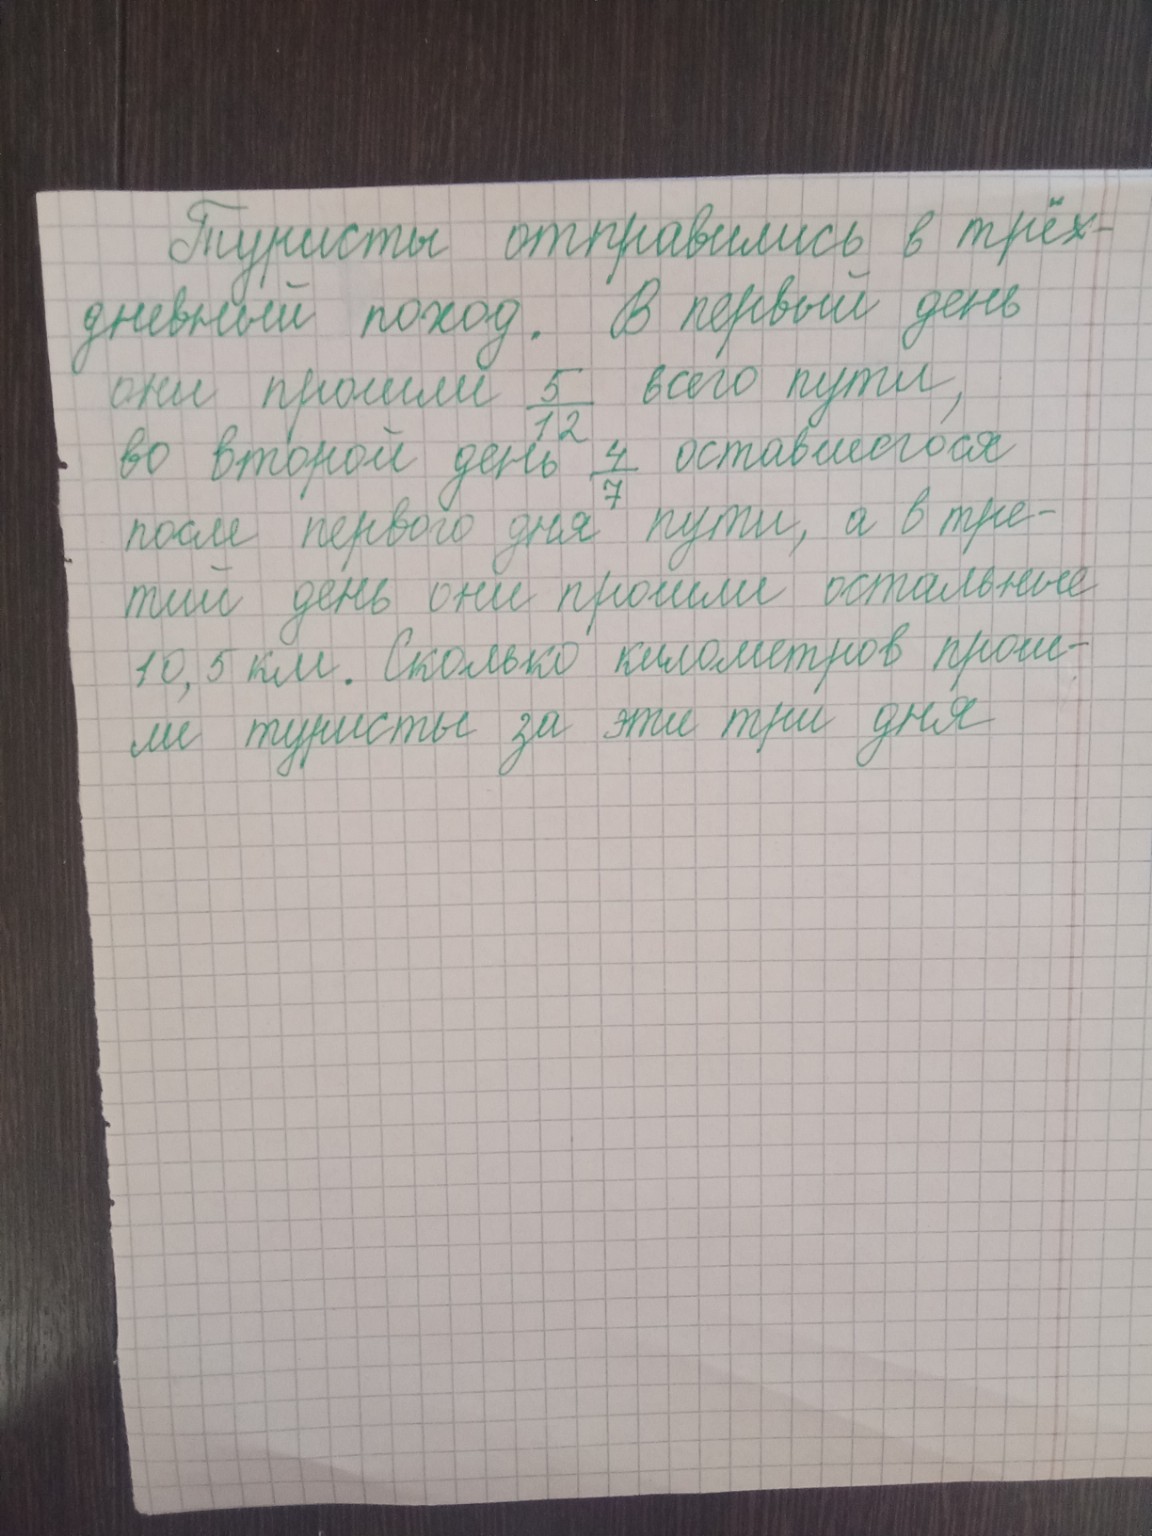 Туристы отправились в трёх-
дневный поход. В первый день
они прошли 5/12 всего пути,
во второй день 4/7 оставшегося
после первого дня пути, а в тре-
тий день они прошли остальные
10,5 км. Сколько километров прош-
ли туристы за эти три дня